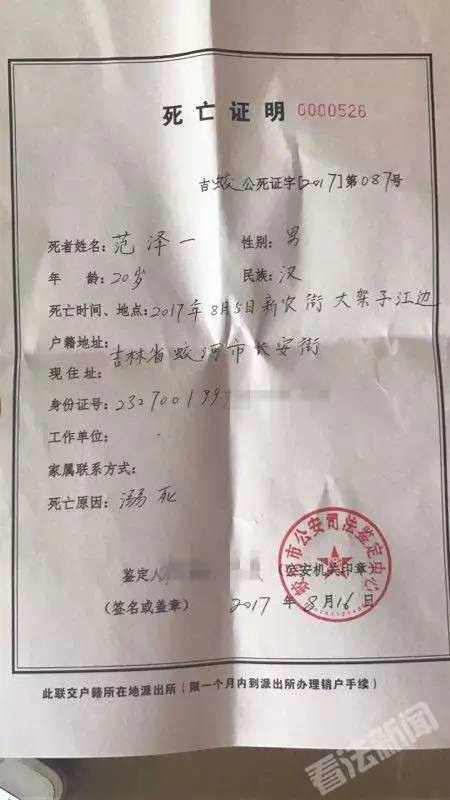 死亡证明 0000526
吉蛟公死证字[2017]第087号
死者姓名：范泽一 性别：男
年 龄：20岁 民族：汉
死亡时间、地点：2017年8月5日新农街 大架子江边
户籍地址：
吉林省蛟河市长安街
现住址：
身份证号：2327001997
工作单位：
家属联系方式：
死亡原因：溺死
鉴定人
（公安机关印章）
蛟河市公安司法鉴定中心
（签名或盖章） 2017年8月16日
此联交户籍所在地派出所（限一个月内到派出所办理销户手续）
看法新闻